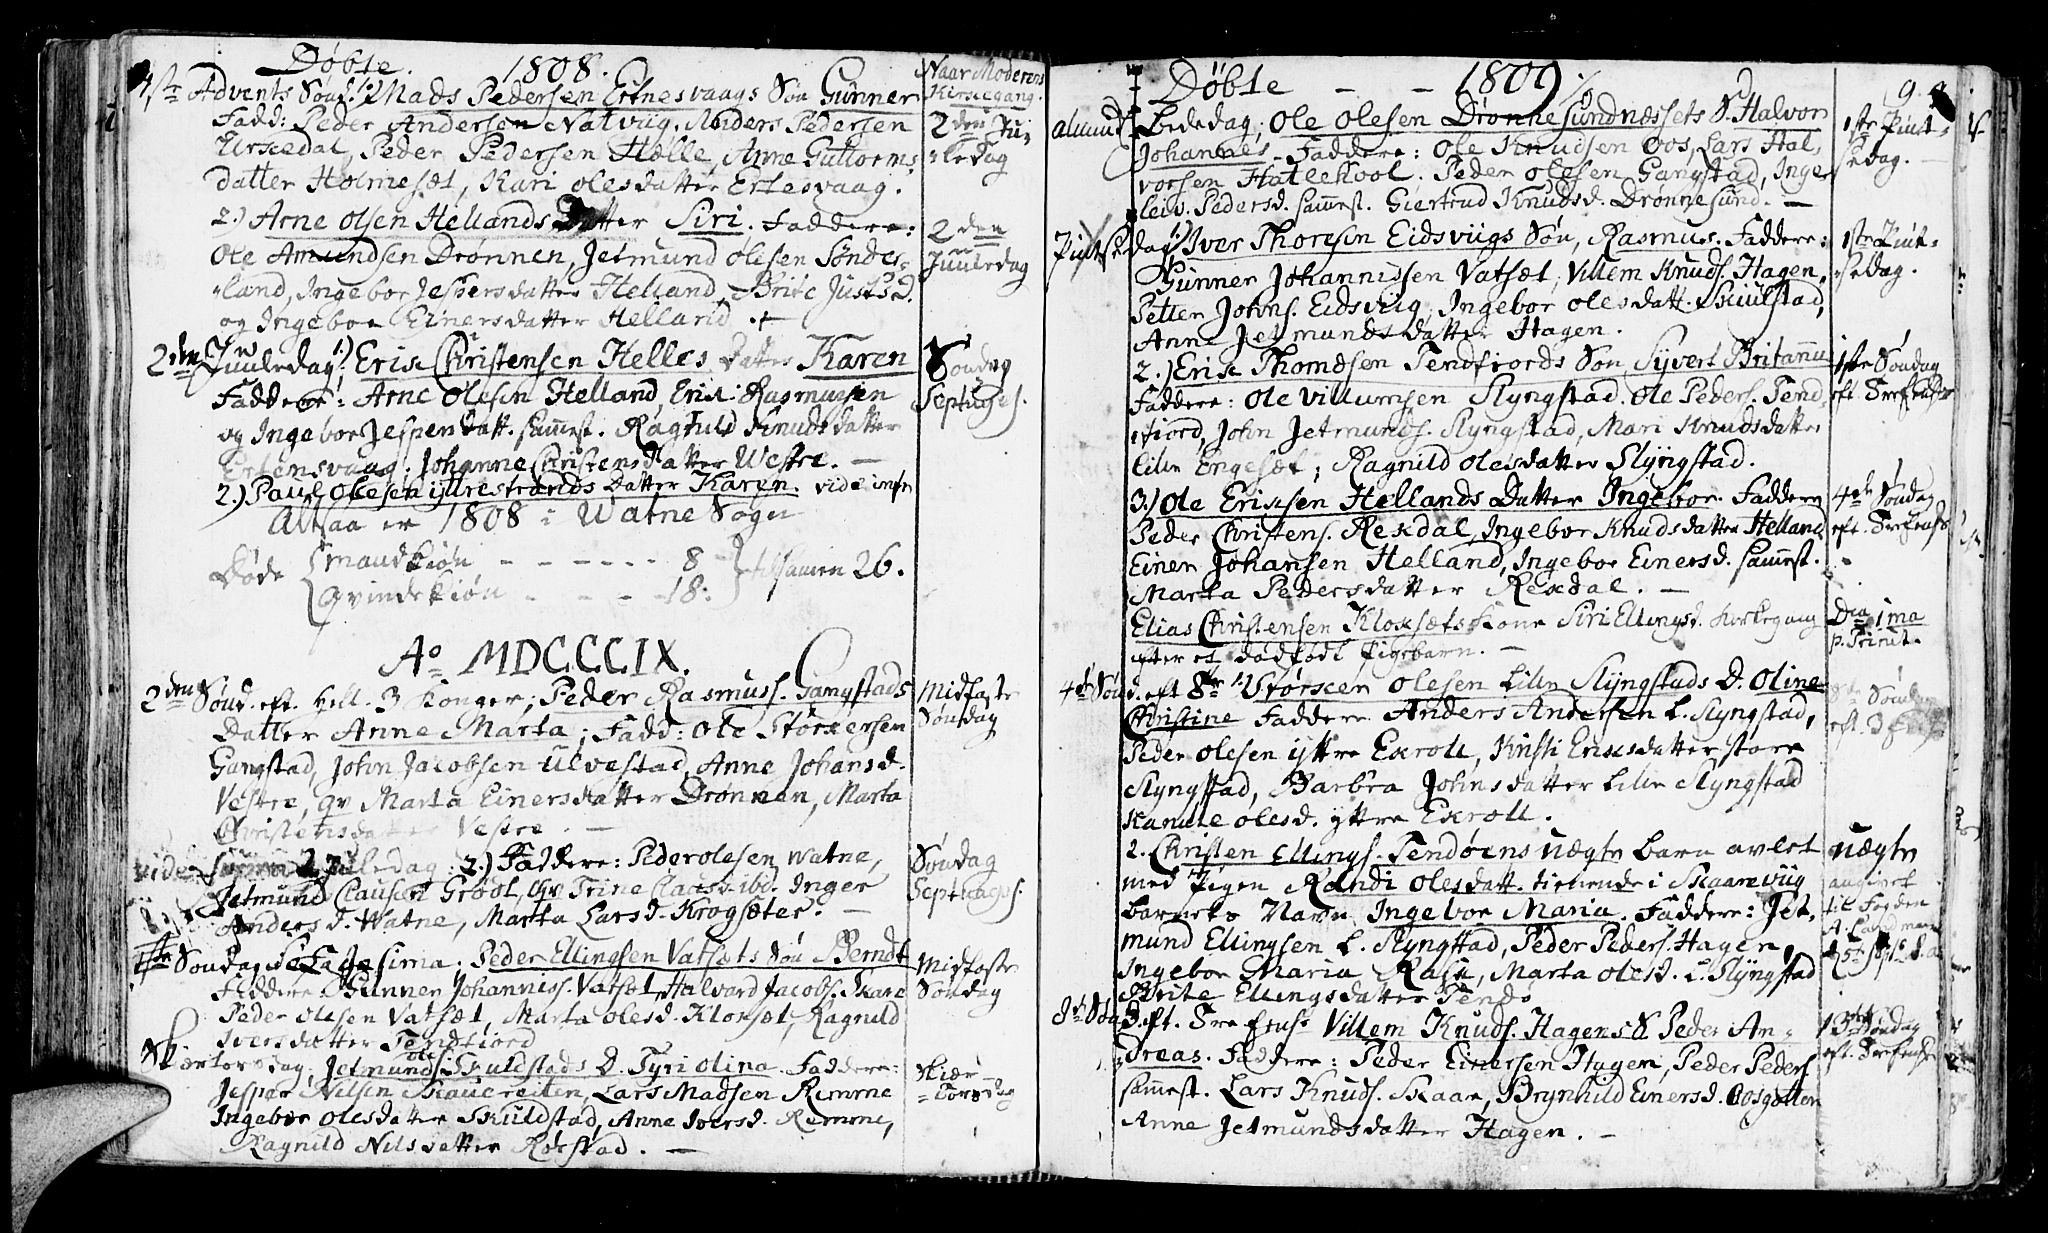 Døbte. 1808.
Naar Moderens
Kirkegang.
4de Advents Sønd: 1.) Mads Pedersen Ertnesvaags Søn Gunner
Fadd: Peder Andersen Natviig, Anders Pedersen
Peder Pedersen Hælle, Anne Guttorms
datter Holmeset, Kari Olesdatter Ertesvaag.
2den Ju-
-ledag
2.) Arne Olsen Hellands Datter Siri. Faddere:
Ole Amundsen Drønnen, Jetmund Olesen Søndes-
-land, Ingebor Jespersdatter Helland, Brite Justsd.
og Ingebor Einersdatter Helland.
2den
Juuledag
2den Juuledag 1.) Erik Christensen Helles Datter Karen
Faddere: Arne Olesen Helland, Erik Rasmussen
og Ingebor Jespersdatt. sammest. Ragnild Knudsdatter
Ertensvaag. Johanne Christensdatter Westre. —
Søndag
Septuages.
2.) Paul Olesen ÿttrestrands Datter Karen. vide infr
Altsaa er 1808 i Watne Sogn
Døde Mandkiøn - - - - - - 8
Qvindekiøn - - - - 18. tilsamen 26.
Ao MDCCCIX.
2den Sønd. eft. Hell. 3 Konger; Peder Rasmuss. Gangstads
Datter Anne Marta; Fadd: Ole Størkersen
Gangstad, John Jacobsen Ulvestad, Anne Johansd.
Vestre, qv Marta Einersdatter Drønnen, Marta
Christensdatter Vestre. —
Midfaste
Søndag
vide supra 2 Juledag 2.) Faddere: Peder Olesen Watne,
Jetmund Clausen Groot, qv Trine Clausd. ibd. Inger
Andersd. Watne, Marta Larsd. Krogsæter. —
Søndag
Septuages.
Søndag Sexagesima. Peder Ellingsen Vatsæts Søn Berndt
Faddere Gunner Johanniss. Vatsæt, Halvard Jacobs. Skare
Peder Olesen Vatsæt, Marta Olesd. Kloksæt, Ragnild
Iversdatter Tendfiord
Midfaste
Søndag
Skiærtorsdag, Jetmund Ols. Skuldstads D. Tyri Olina. Faddere:
Jesper Nilsen Skaucreiten, Lars Madsen Remme
Ingebor Olesdatter Skuldstad, Anne Iversd. Remme,
Ragnild Nilsdatter Rørstad. —
Skiær
-Torsdag
Døbte - - 1809
9.
almind. Bededag; Ole Olesen Drønnesundnæssets S. Halvor
Johannes. Faddere: Ole Knudsen Oos, Lars Hal-
vorsen Hatlehool. Peder Olesen Gangstad, Inge-
leiv. Pedersd. sammest. Giertrud Knudsd. Drønnesund. —
1ste Pint-
sedag. —
Pintsedag 1.) Iver Thoresen Eidsviigs Søn, Rasmus. Faddere:
Gunner Johannissen Vatsæt, Villem Knuds. Hagen,
Petter Johns. Eidsviig, Ingebor Olesdatt. Skiulstad,
Anne Jetmundsdatter Hagen.
1ste Pint-
-sedag.
2.) Erik Thomdsen Tendfiords Søn Sÿvert Britannus
Faddere: Ole Villumsen Slyngstad. Ole Peders. Tend-
fiord, John Jetmunds. Slyngstad, Mari Knudsdatter
lille Engeset; Ragnild Olesdatter Slÿngstad.
1ste Søndag
eft. Trefoldigh
3.) Ole Eriksen Hellands Datter Ingebor. Faddere
Peder Christens. Rekdal, Ingebor Knudsdatter Helland
Einer Johansen Helland, Ingebor Einersd. sammest.
Marta Pedersdatter Rekdal. —
4de Søndag
eft. Trefoldh
Elias Christensen Kloksæts Kone Siri Ellingsd. Kirkegang
efter et dødfødt Pigebarn. —
Dca 1ma
p. Trinit.
4de Sønd. eft 1. Størker Olesen Lille Slÿngstads D. Oline
Christine Faddere Anders Andersen L. Slyngstad,
Peder Olesen ÿttre Ekroll, Kirsti Eriksdatter store
Slyngstad, Barbra Johnsdatter Lille Slyngstad
Kanute Olesd. ÿttre Ekroll.
Søndag
2. Christen Ellings. Tendøens uægte barn avlet
med Pigen Randi Olesdatt. tienende i Skaareviig
barnets Navn Ingebor Maria. Faddere: Jet-
mund Ellingsen L. Slyngstad, Peder Peders. Hagen,
Ingebor Maria, Marta Olesd. L. Slÿngstad
Brite Ellingsdatter Tendø
uægte
angivet
til Fogden
8de Sønd. eft. Trefoldh. Villem Knuds. Hagens S. Peder An-
dreas. Faddere: Peder Einersen Hagen, Peder Peders.
sammest. Lars Knuds. Skaar, Brynhild Einersd.
Anne Jetmundsdatter Hagen. —
Søndag
eft. Trefoldh